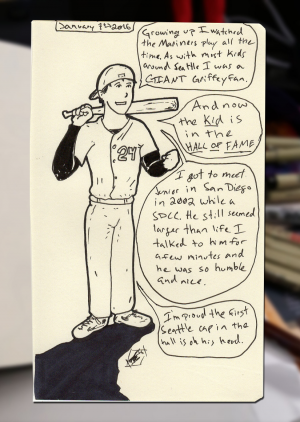 January 7th 2016
Growing up I watched
the Mariners play all the
time. As with most kids
around Seattle I was a
GIANT Griffey fan.
And now
the Kid is
in the
HALL OF FAME
24
I got to meet
Junior in San Diego
in 2002 while a
SDCC. He still seemed
larger than life I
talked to him for
a few minutes and
he was so humble
and nice.
I'm proud the first
Seattle cap in the
hall is on his head.